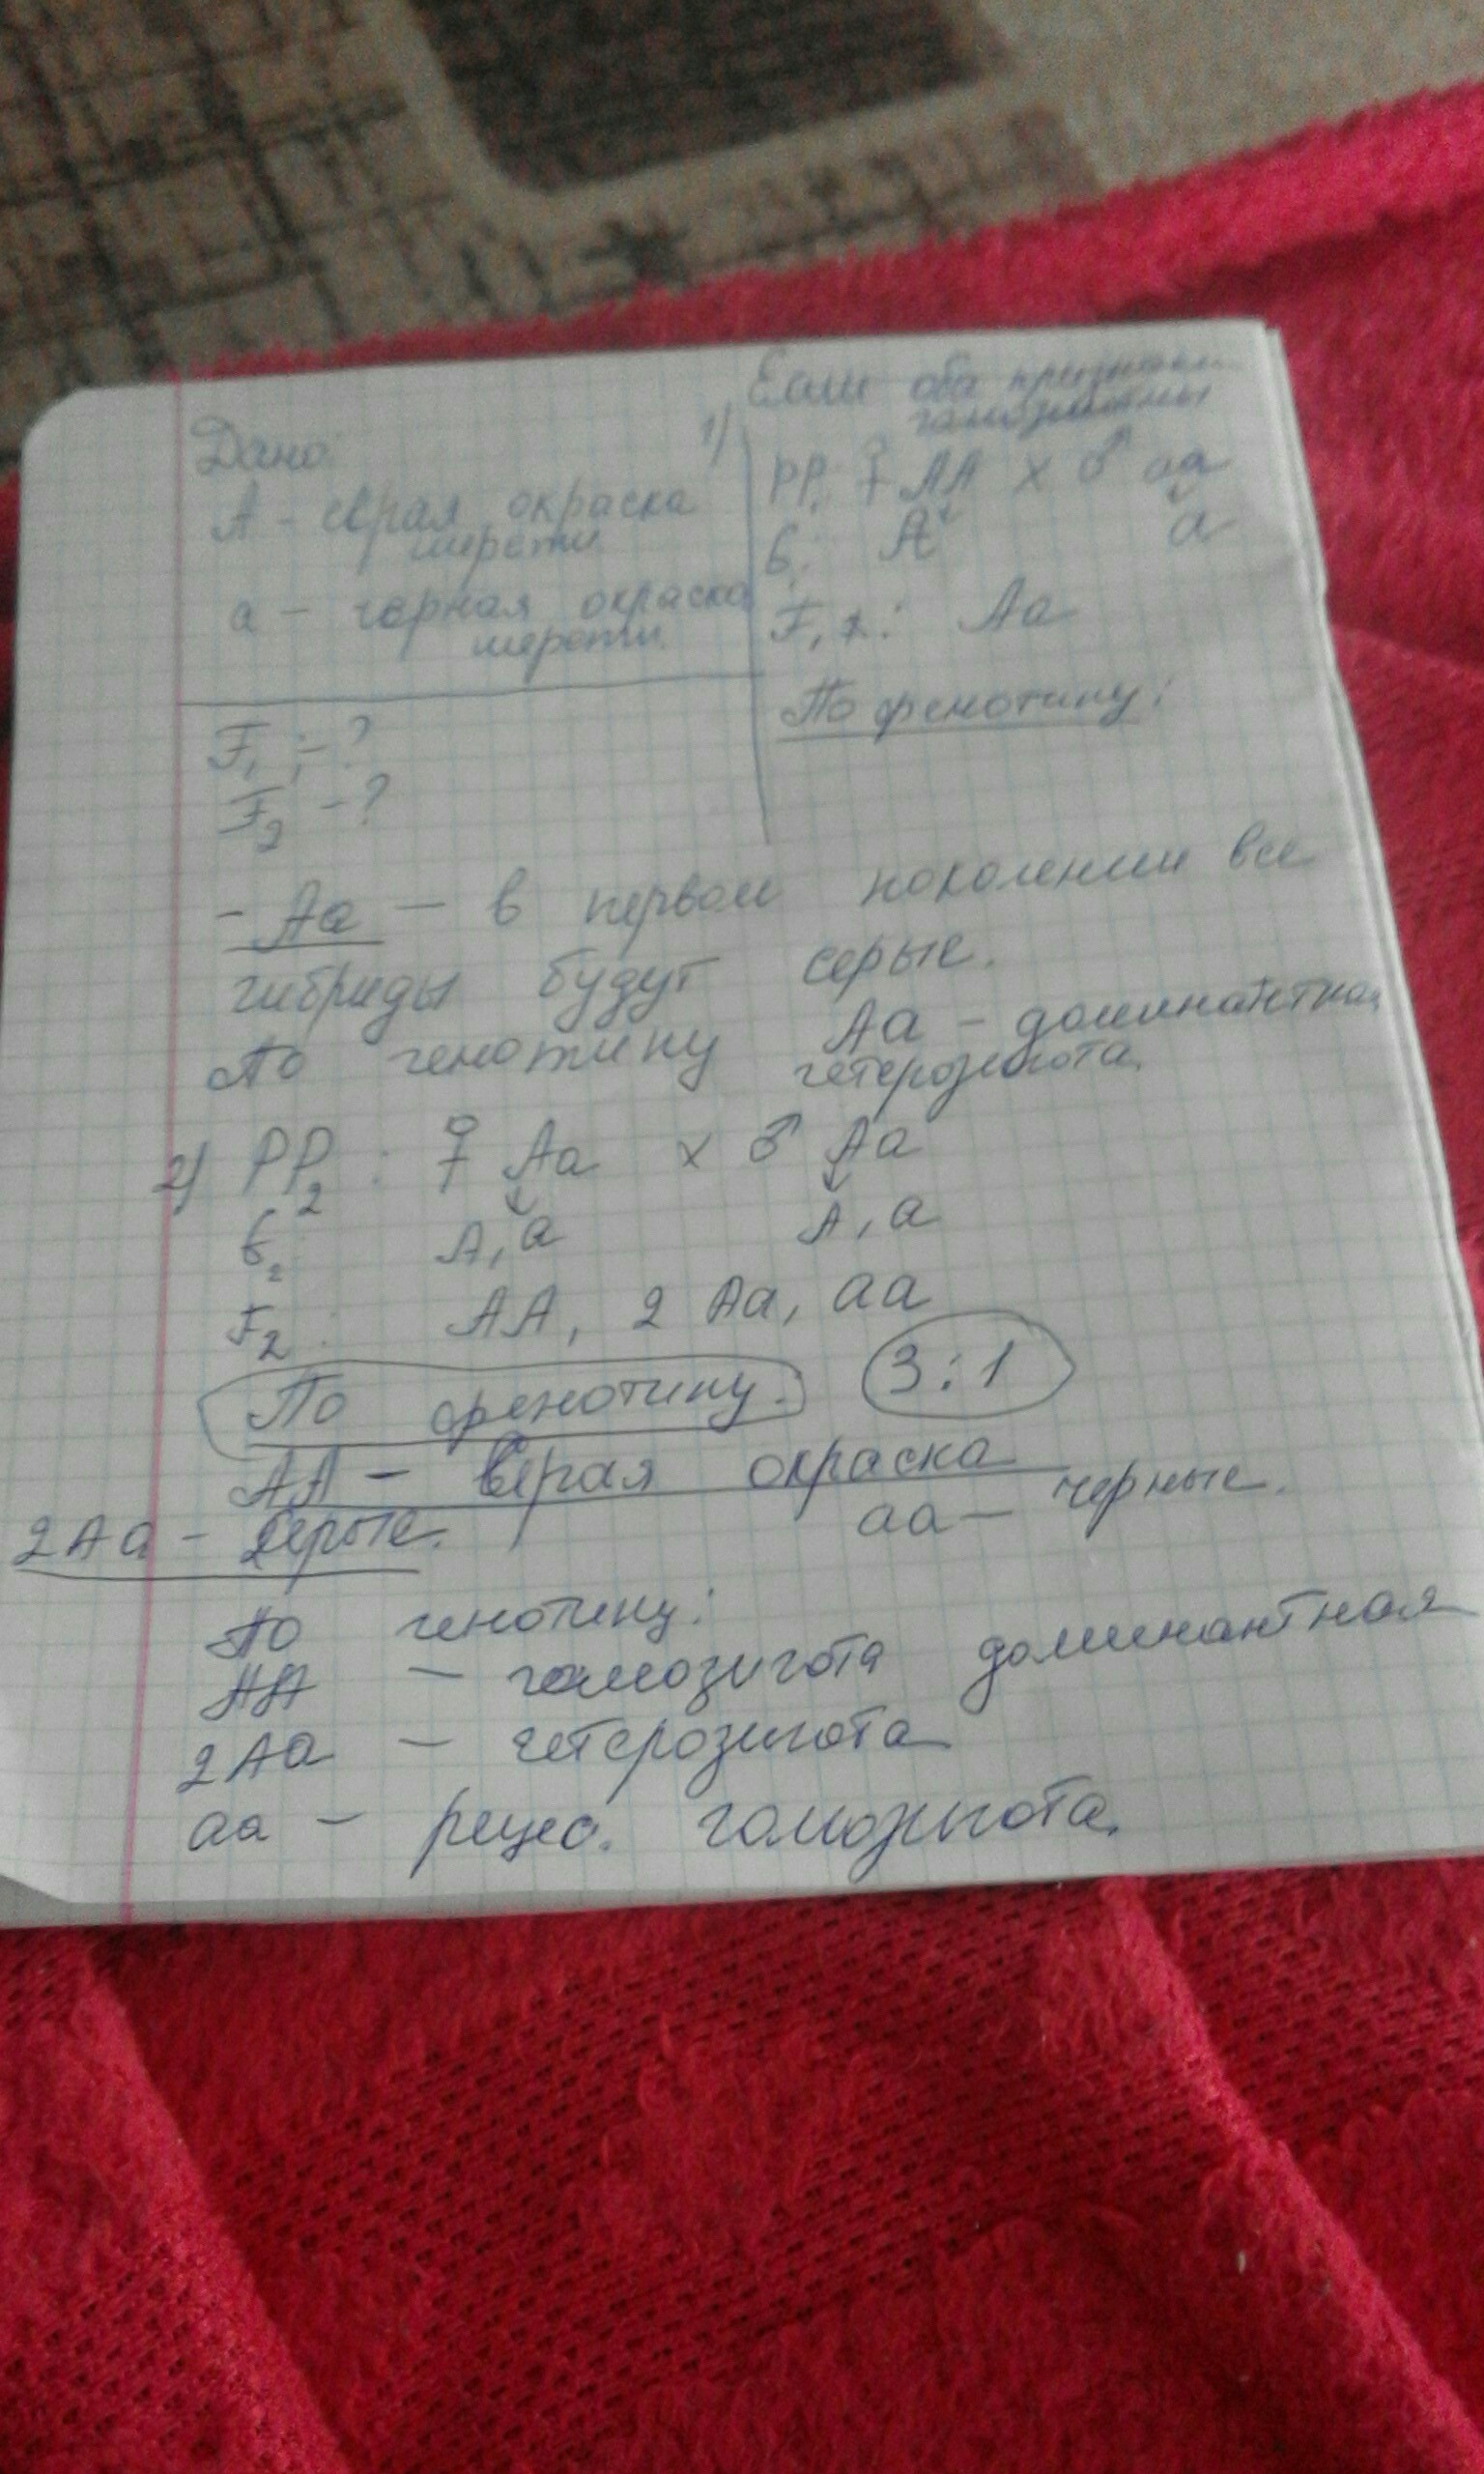 Дано:
А - серая окраска
шерсти
а - черная окраска
шерсти.
F1 ; - ?
F2 - ?
1)
Если оба признака
гомозиготны
PP: ♀ АА × ♂ аа
G: А а
F1 : Аа
По фенотипу:
- Аа - в первом поколении все
гибриды будут серые.
По генотипу Аа - доминантная
гетерозигота.
2) PP2 : ♀ Аа × ♂ Аа
G2: А, а А, а
F2 : АА, 2 Аа, аа
По фенотипу: 3:1
АА - серая окраска
2Аа - серые. аа - черные.
По генотипу:
АА - гомозигота доминантная
2Аа - гетерозигота
аа - рецес. гомозигота.